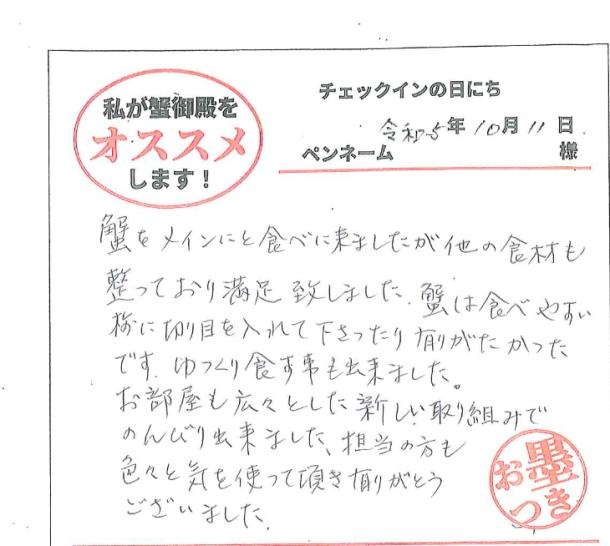 私が蟹御殿を
オススメ
します!
チェックインの日にち
令和5年 10月 11日
ペンネーム 様
蟹をメインにと食べに来ましたが他の食材も
整っており満足致しました. 蟹は食べやすい
様に切り目を入れて下さったり有りがたかった
です. ゆっくり食す事も出来ました。
お部屋も広々とした新しい取り組みで
のんびり出来ました、担当の方も
色々と気を使って頂き有りがとう
ございました.
お墨つき